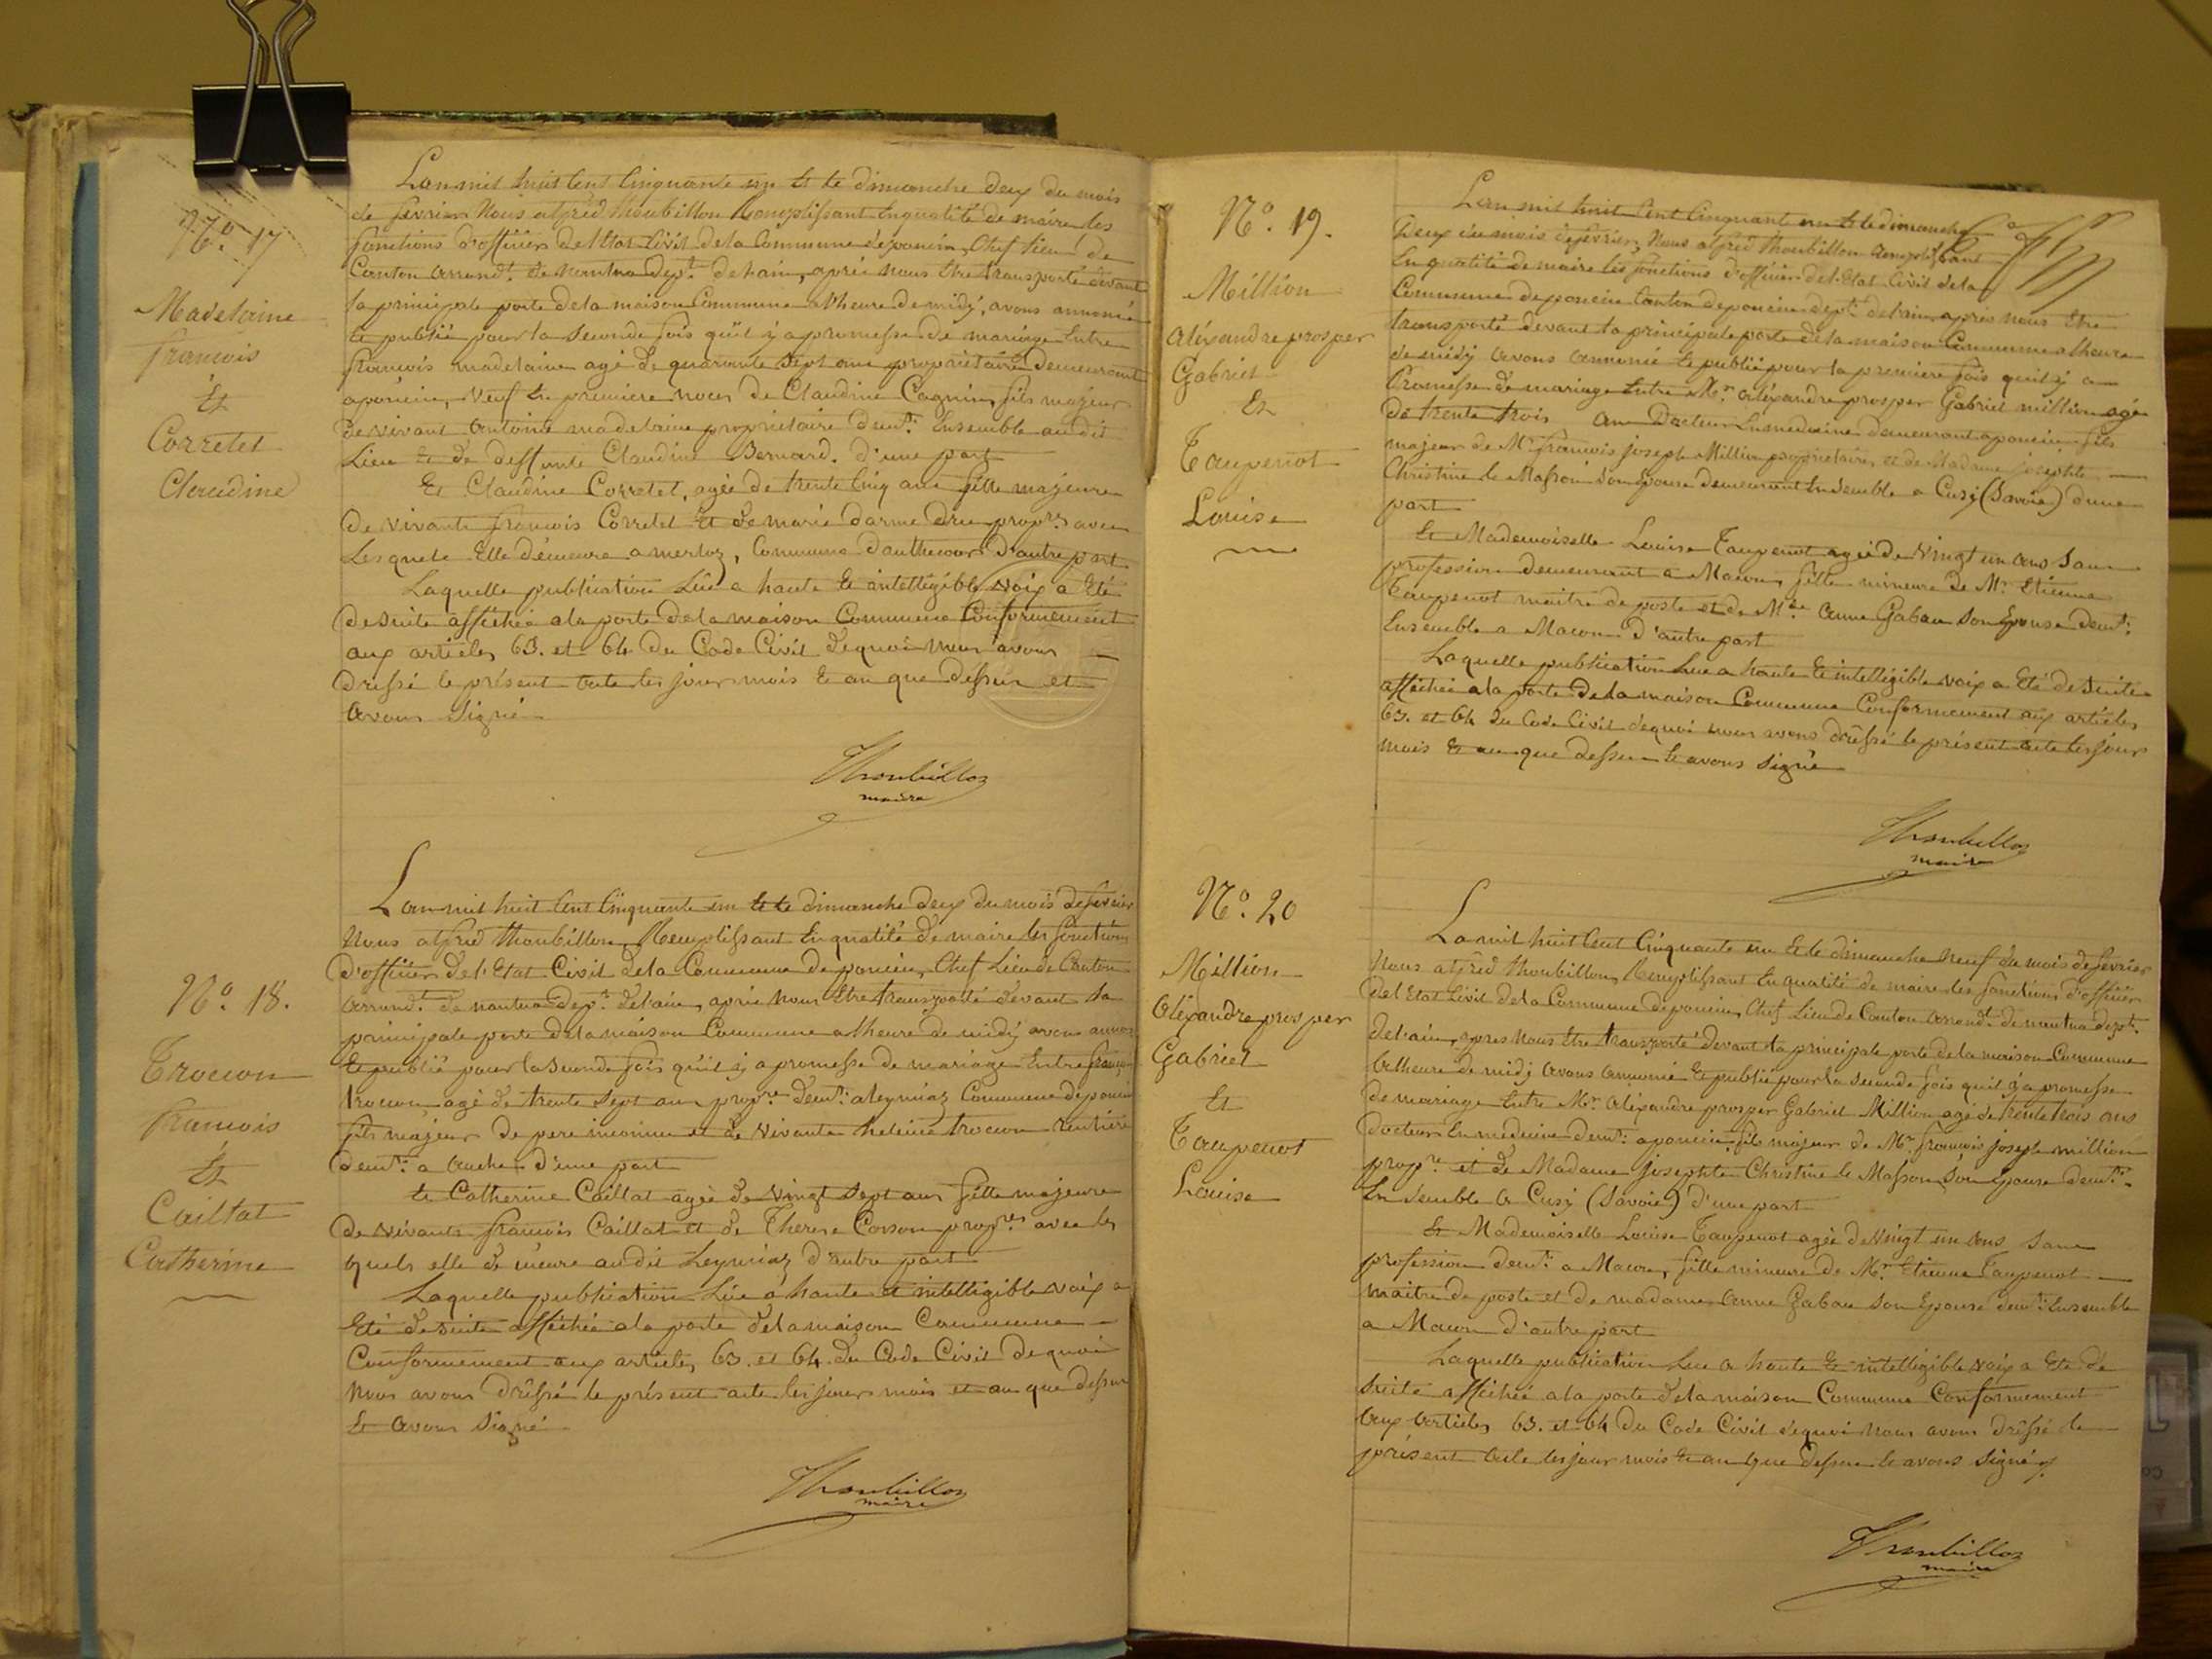 N.o 17
Madelaine
francois
Et
Corretel
Claudine
Lan mil huit Cent Cinquante un Et le dimanche deux du mois
de fevrier Nous alfred thoubillon Remplissant Enqualité de maire les
fonctions d'officier de l'Etat Civil dela Commune deponcin, Chef Lieu de
Canton arrond.t de nantua dep.t de lain, après nous Etre transporté devant
la principale porte dela maison Commune a l'heure de midj, avons annoncé
Et publié pour la Seconde fois qu'il y a promesse de mariage Entre
francois madelaine agé de quarante Sept ans propriétaire demeurant
aponcin, Veuf En premiere noces de Claudine Cagnin, fils majeur
de vivant antoine madelaine propriétaire dem.t Ensemble audit
Lieu et de deffunte Claudine Bernard. d'une part
Et Claudine Corretel, agée de trente Cinq ans fille majeure
de vivants francois Corretel Et de marie darme dru prop.res avec
Lesquels Elle démeure a merloz, Commune dauthecour d'autre part
Laquelle publication Lue a haute Et intelligible Voix a Eté
de suite affichée ala porte dela maison Commune Conformement
aux articles 63. et 64 du Code Civil dequoi nous avons
dressé le présent acte les jour mois Et an que dessus et
avons signé
Thoubillon
maire
N.o 18.
Trocon
francois
Et
Caillat
Catherine
Lan mil huit Cent Cinquante un Et le dimanche deux du mois de fevrier
Nous alfred thoubillon, Remplissant Enqualité de maire les fonctions
d'officier de l'Etat Civil dela Commune de poncin, Chef Lieu de Canton
arrond.t de nantua dep.t delain, après nous Etre transporté devant la
principale porte dela maison Commune a lheure de midj avons annon
Et publié pour la Seconde fois qu'il y a promesse de mariage Entre françoi
trocon agé de trente Sept ans prop.re dem.t aleymiaz Commune deponcin
fils majeur de pere inconnu et de Vivante heleine trocon rentière
dem.t a d'une part
Et Catherine Caillat agée de Vingt Sept ans fille majeure
de vivants francois Caillat et de Therese Corson prop.res avec les
quels elle démeure audit Leymiaz d'autre part
Laquelle publication Lue a haute et intelligible Voix a
Eté de suite affichée ala porte dela maison Commune
Conformement aux articles 63. et 64. du Code Civil de quoi
Nous avons drêssé le présent acte les jour mois et an que dessus
Et avons signé
Thoubillon
maire
N.o 19.
Million
aléxandre prosper
Gabriel
Et
Taupenot
Louise
Lan mil huit Cent Cinquant un Et le dimanche
Deux du mois defevrier, Nous alfred thoubillon Remplissant
En qualité de maire les fonctions d'officier de l'Etat Civil dela
Commune deponcin Canton deponcin dep.t delain, apres nous Etre
transporté devant la principale porte dela maison Commune a lheure
de midj avons annoncé Et publié pour la premiere fois quil y a
Promesse de mariage Entre M.r aléxandre prosper Gabriel million agé
de trente trois ans Docteur En medecine demeurant aponcin fils
majeur de M.r francois joseph Million propriétaire, et de Madame josephte
Christine le Masson son épouse demeurant Ensemble a Cusj (Savoie) d'une
part
Et Mademoiselle Louise Taupenot agée de Vingt un ans Sans
profession demeurant a Macon, fille mineure de M.r Etienne
Taupenot maitre de poste et de M.de anne Gabau son Epouse dem.t
Ensemble a Macon d'autre part
Laquelle publication Lue a haute Et intelligible voix a Eté de suite
affichée ala porte dela maison Commune Conformement aux articles
63. et 64 du Code Civil dequoi nous avons drêssé le présent acte les jour
mois Et an que dessus Et avons signé
Thoubillon
maire
N.o 20
Million
Aléxandre prosper
Gabriel
Et
Taupenot
Louise
La mil huit Cent Cinquante un Et le dimanche neuf du mois de fevrier
Nous alfred thoubillon, Remplissant En qualité de maire les fonctions d'officier
del Etat Civil dela Commune deponcin, Chef Lieu de Canton arrond.t de nantua dep.t
delain, apres nous Etre transporté devant la principale porte dela maison Commune
a lheure de midj avons annoncé Et publié pour la Seconde fois quil y a promesse
de mariage Entre M.r aléxandre prosper Gabriel Million agé de trente trois ans
docteur En medecine dem.t aponcin fils majeur de M.r francois joseph million
prop.re et de Madame josephte Christine le Masson, son Epouse dem.t
En semble a Cusj (Savoie) d'une part
Et Mademoiselle Louise Taupenot agée de Vingt un ans Sans
profession dem.t a Macon, fille mineure de M.r Etienne Taupenot
maitre de poste et de madame anne Gabau son Epouse dem.t Ensemble
a Macon d'autre part
Laquelle publication Lue a haute Et intelligible voix a Eté de
suite affichée ala porte dela maison Commune Conformement
aux articles 63. et 64 du Code Civil dequoi nous avons drêssé le
présent acte les jour mois Et an que dessus Et avons signé
Thoubillon
maire